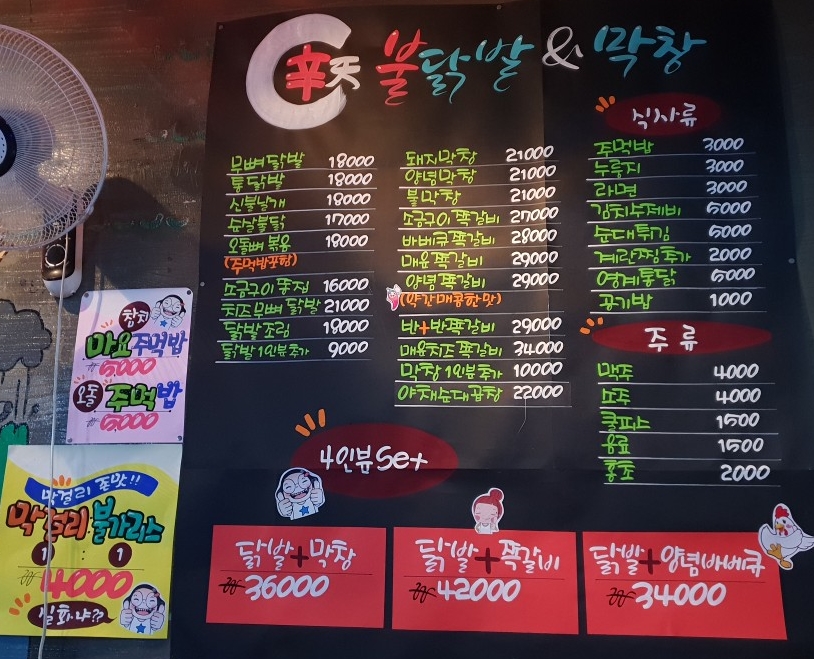 辛天 불닭발 & 막창
무뼈닭발 18000
통닭발 18000
신불날개 18000
순살불닭 17000
오돌뼈볶음 18000
(주먹밥포함)
소금구이똥집 16000
치즈무뼈닭발 21000
닭발조림 18000
닭발1인분추가 9000
돼지막창 21000
양념막창 21000
불막창 21000
소금구이쪽갈비 27000
바베큐쪽갈비 28000
매운쪽갈비 29000
양념쪽갈비 29000
(약간매콤한맛)
반+반쪽갈비 29000
매운치즈쪽갈비 34000
막창1인분추가 10000
야채순대곱창 22000
식사류
주먹밥 3000
누룽지 3000
라면 3000
김치수제비 5000
순대튀김 5000
계란찜추가 2000
영계통닭 5000
공기밥 1000
주류
맥주 4000
소주 4000
쿨피스 1500
음료 1500
홍초 2000
참치
마요주먹밥
₩5000
오돌 주먹밥
₩5000
막걸리 존맛!!
막걸리 불가리스
1 : 1
4000
실화냐??
4인분 Set
닭발+막창
36000
닭발+쪽갈비
42000
닭발+양념바베큐
34000